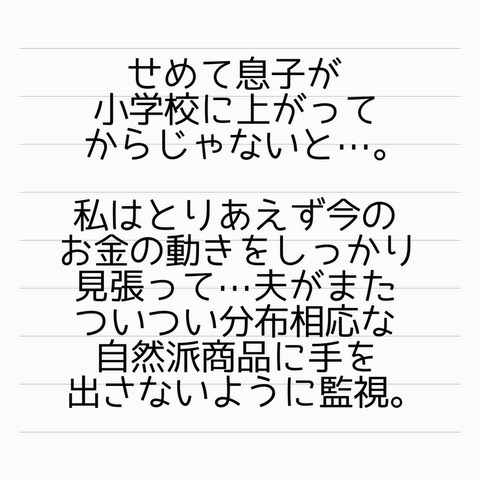 せめて息子が
小学校に上がって
からじゃないと…。
私はとりあえず今の
お金の動きをしっかり
見張って…夫がまた
ついつい分布相応な
自然派商品に手を
出さないように監視。